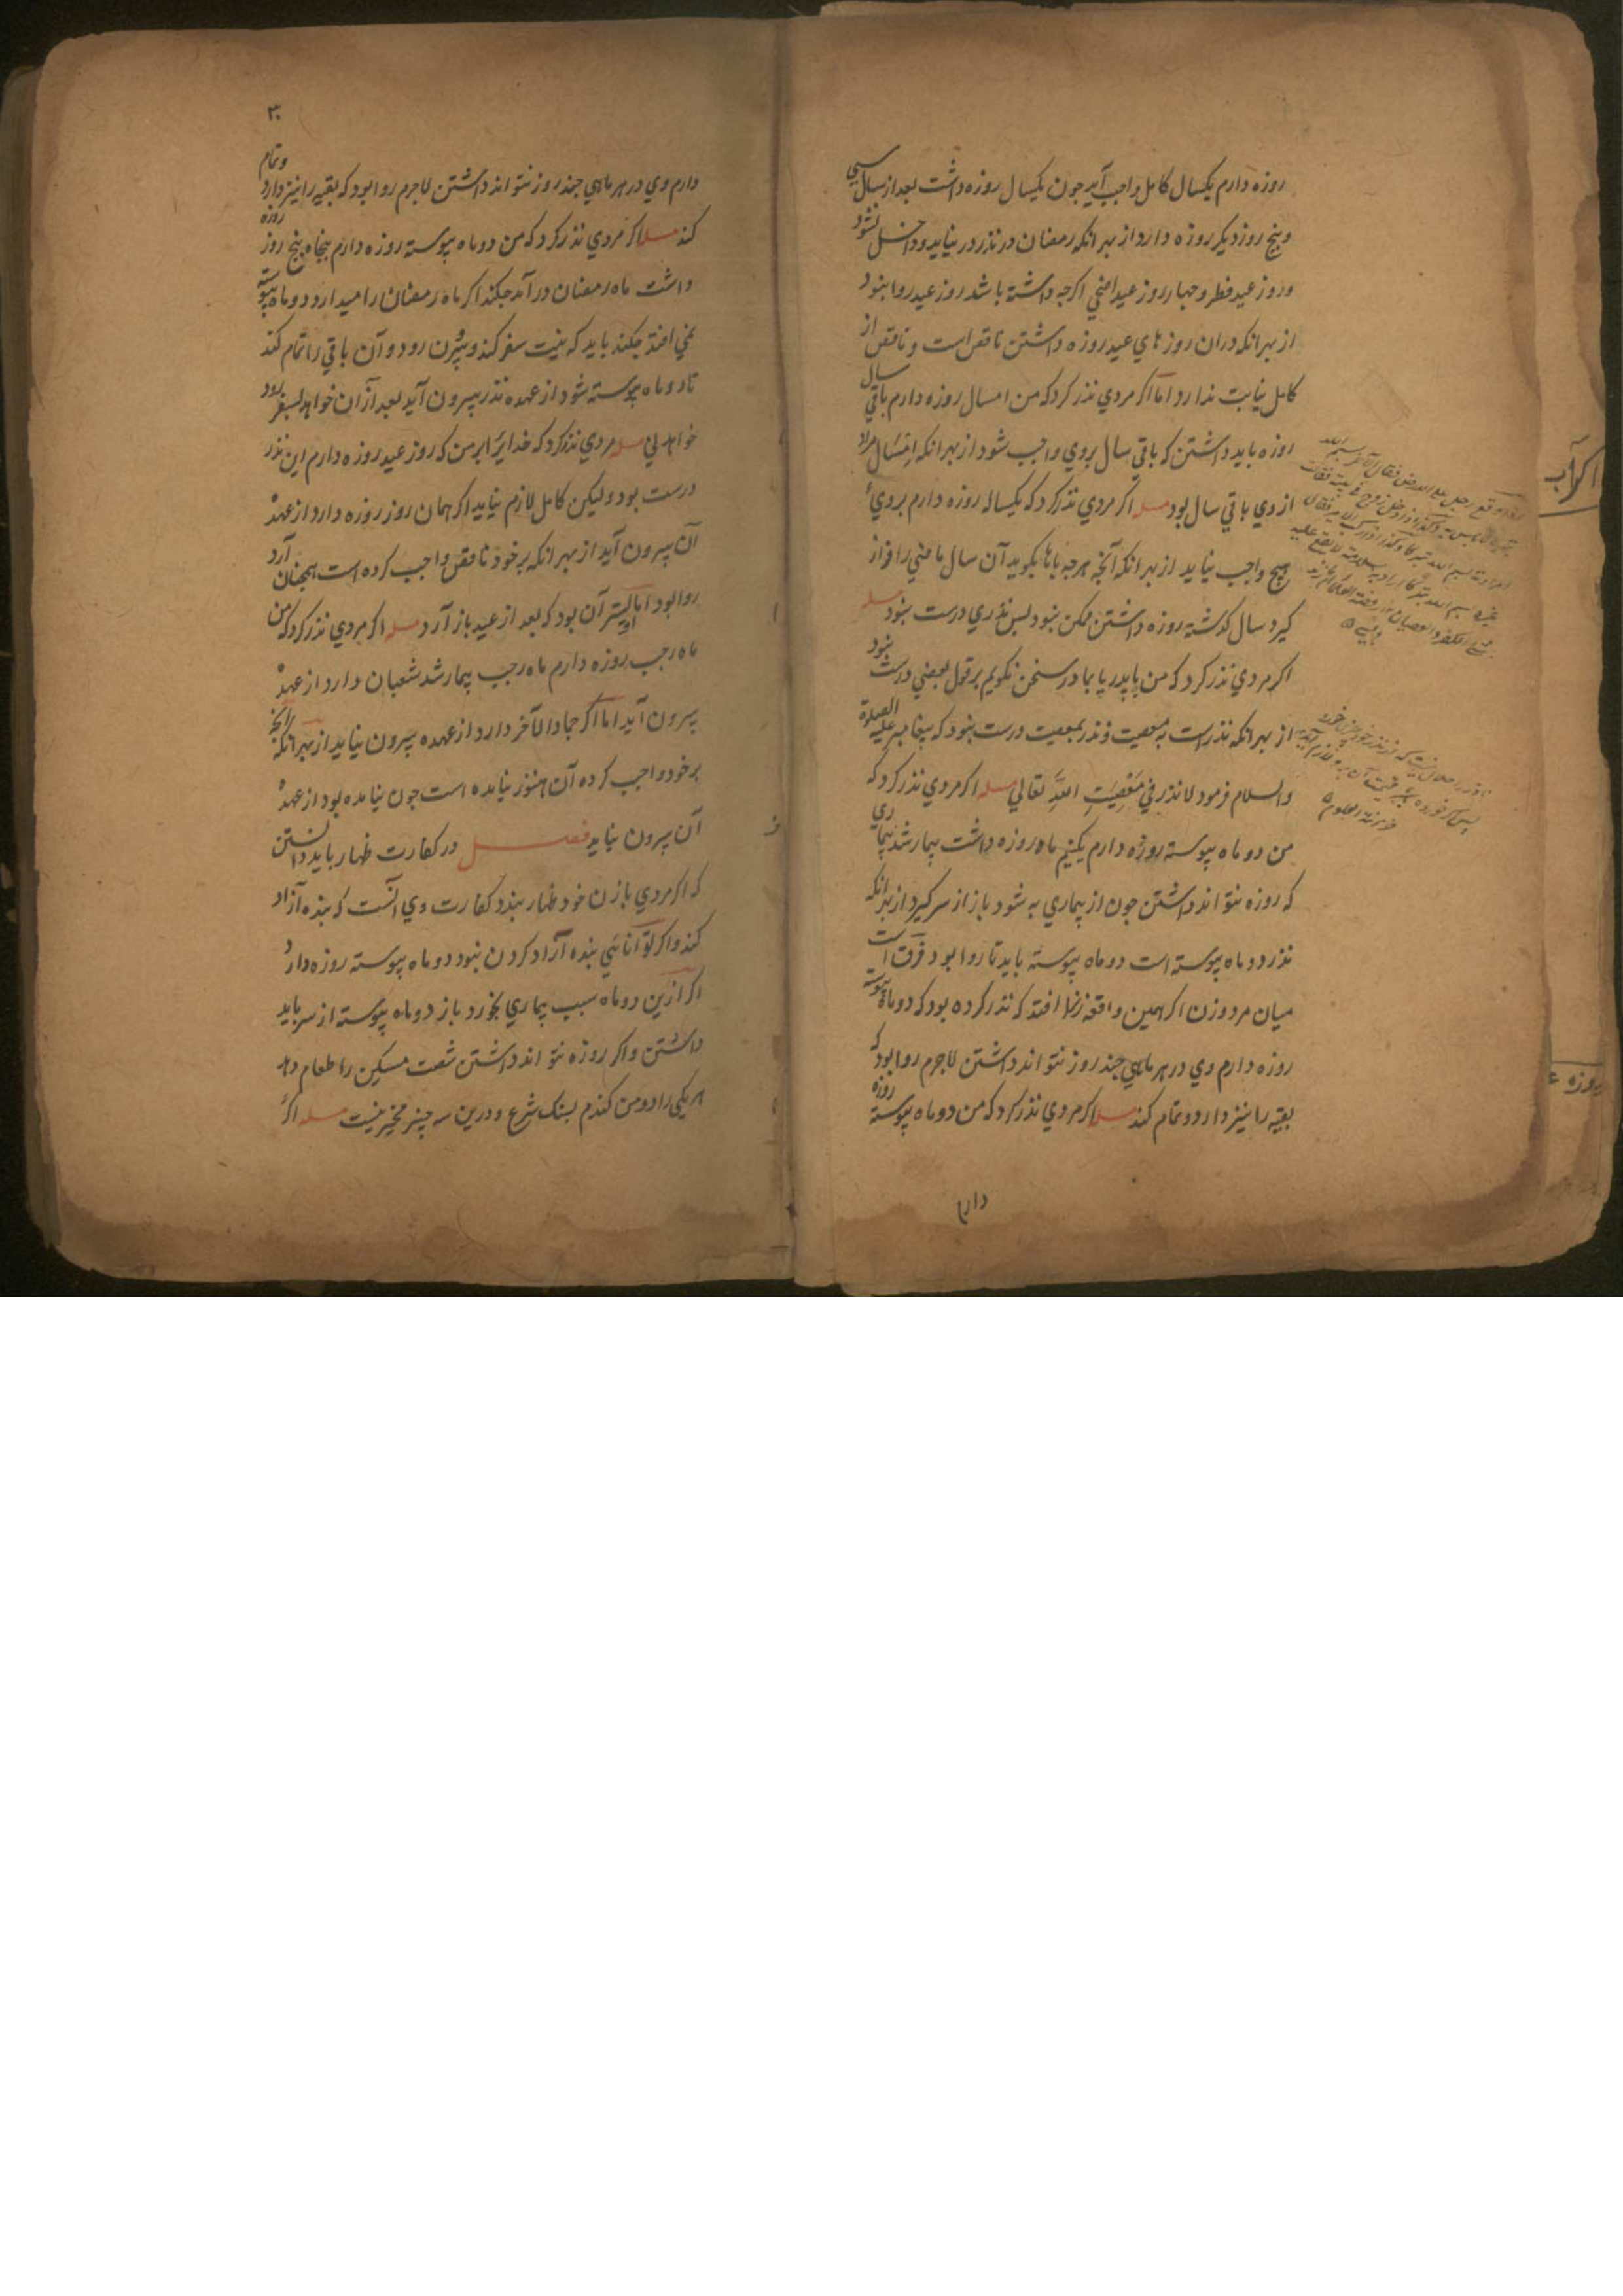 روزه دارم یکسال کامل واجب آید جون یکسال روزه داشت بعد از سال سی
و پنج روز دیکر روزه دارد از بهر انکه رمضان در نذر در نیاید و داخل نشود
و روز عید فطر و جهار روز عید اضحی اکرجه داشته باشد روز عید روا نبود
از بهر انکه دران روز های عید روزه داشتن ناقص است و ناقص از
کامل نیابت ندارد اما اکر مردی نذر کرد که من امسال روزه دارم باقی سال
روزه باید داشتن که باقی سال بروی واجب شود از بهر انکه امسال مراد
ازوی باقی سال بود مسله اکر مردی نذر کرد که یکساله روزه دارم بروی
هیج واجب نیاید از بهر انکه آنجه هرجه بانها بکوید آن سال ماضی را فراز
کیرد سال کذشته روزه داشتن ممکن نبود بس نذری درست نبود مسله
اکر مردی نذر کرد که من با پدر یا بمادر سخن نکویم بر قول بعضی درست نبود
از بهر انکه نذر است به معصیت و نذر بمعصیت درست نبود که پیغامبر علیه الصلوة
والسلام فرمود لا نذر فی معصیت الله تعالی مسله اکر مردی نذر کرد که
من دو ماه پیوسته روزه دارم یکنیم ماه روزه داشت بیمار شد بیماری
که روزه نتواند داشتن جون از بیماری به شود باز از سر کیرد از بهر انکه
نذر دو ماه پیوسته است دو ماه پیوسته باید تا روا بود فرق است
میان مرد و زن اکر همین واقعه زنرا افتد که نذر کرده بود که دو ماه پیوسته
روزه دارم وی در هر ماهی جند روز نتواند داشتن لاجرم روا بود که
بقیه را نیز دارد و تمام کند مسله اکر مردی نذر کرد که من دو ماه پیوسته روزه
دارم
اکر آب
روزه ع
۳۰
دارم وی در هر ماهی جند روز نتواند داشتن لاجرم روا بود که بقیه را نیز دارد و تمام
کند مسله اکر مردی نذر کرد که من دو ماه پیوسته روزه دارم پنجاه پنج روز روزه
داشت ماه رمضان در آمد جکند اکر ماه رمضان را میدارد دو ماه پیوسته
نمی افتد جکند باید که نیت سفر کند و بیرون رود و آن باقی را تمام کند
تا دو ماه پیوسته شود از عهده نذر بیرون آید بعد از ان خواهد بسفر رود
خواهد نی مسله مردی نذر کرد که خدایرا بر من که روز عید روزه دارم این نذر
درست بود ولیکن کامل لازم نیاید اکر همان روز روزه دارد از عهده
آن بیرون آید از بهر انکه بر خود ناقص واجب کرده است همجنان آرد
روا بود اما اولیتر آن بود که بعد از عید باز آرد مسله اکر مردی نذر کرد که من
ماه رجب روزه دارم ماه رجب بیمار شد شعبان دارد از عهده
بیرون آید اما اکر جماد الآخر دارد از عهده بیرون نیاید از بهر انکه آنج
بر خود واجب کرده آن هنوز نیامده است جون نیامده بود از عهده
آن بیرون نیاید فصل در کفارت ظهار باید دانستن
که اکر مردی با زن خود ظهار بندد کفارت وی آنست که بنده آزاد
کند و اکر توانائی بنده آزاد کردن نبود دو ماه پیوسته روزه دارد
اکر ازین دو ماه سبب بیماری بخورد باز دو ماه پیوسته از سر باید
داشتن و اکر روزه نتواند داشتن شصت مسکین را طعام دهد
هر یکی را دو من کندم بسنک شرع و درین سه چیز مخیر نیست مسله اکر